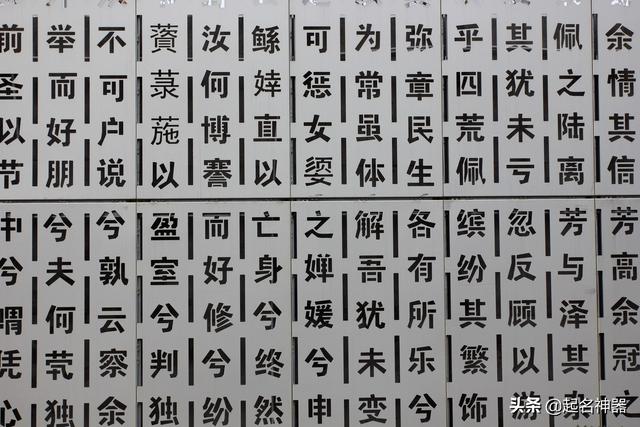 余情其信芳高余冠之
佩之陆离芳与泽其杂
其犹未亏忽反顾以游
乎四荒佩缤纷其繁饰
弥章民生各有所乐兮
为常虽体解吾犹未变
可惩女嬃之婵媛兮申
鲧婞直以亡身兮终然
汝何博謇而好修兮纷
薋菉葹以盈室兮判独
不可户说兮孰云察余
举而好朋兮夫何茕独
前圣以节中兮喟凭心
头条 @起名神器